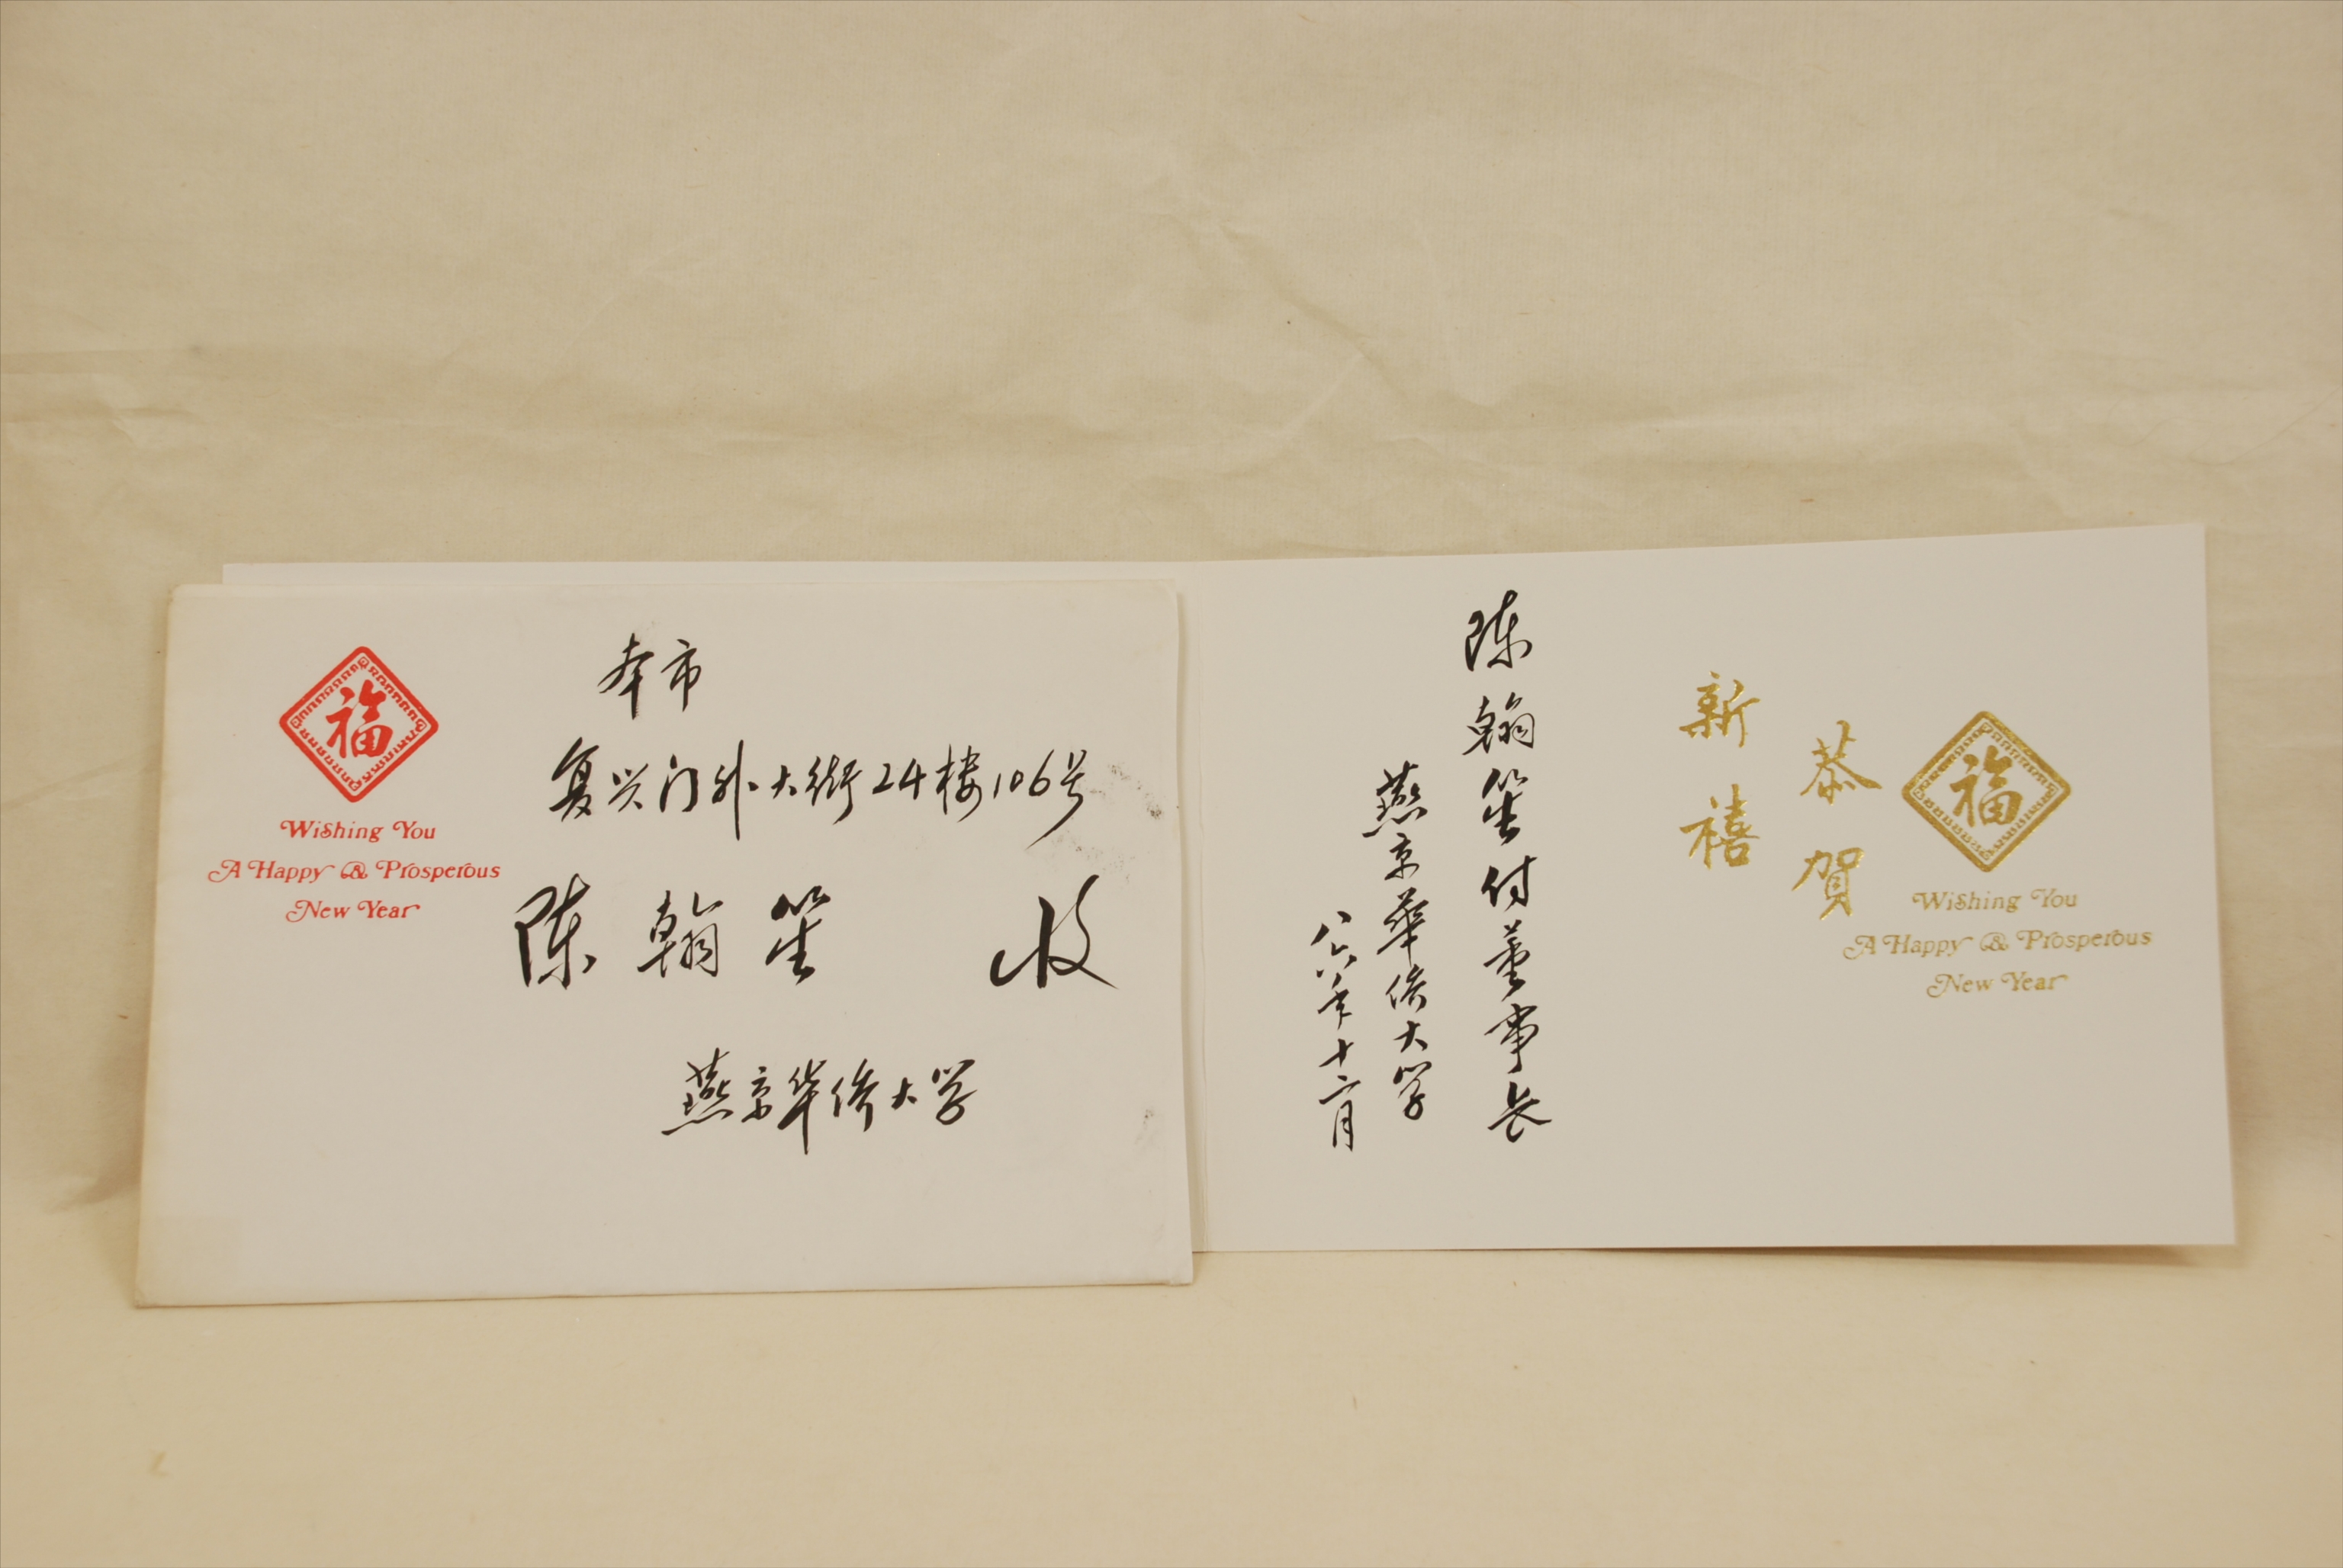 福
Wishing You
A Happy & Prosperous
New Year
本市
复兴门外大街24楼106号
陈翰笙 收
燕京华侨大学
福
Wishing You
A Happy & Prosperous
New Year
恭賀
新禧
陈翰笙付董事长
燕京華侨大学
八六年十二月